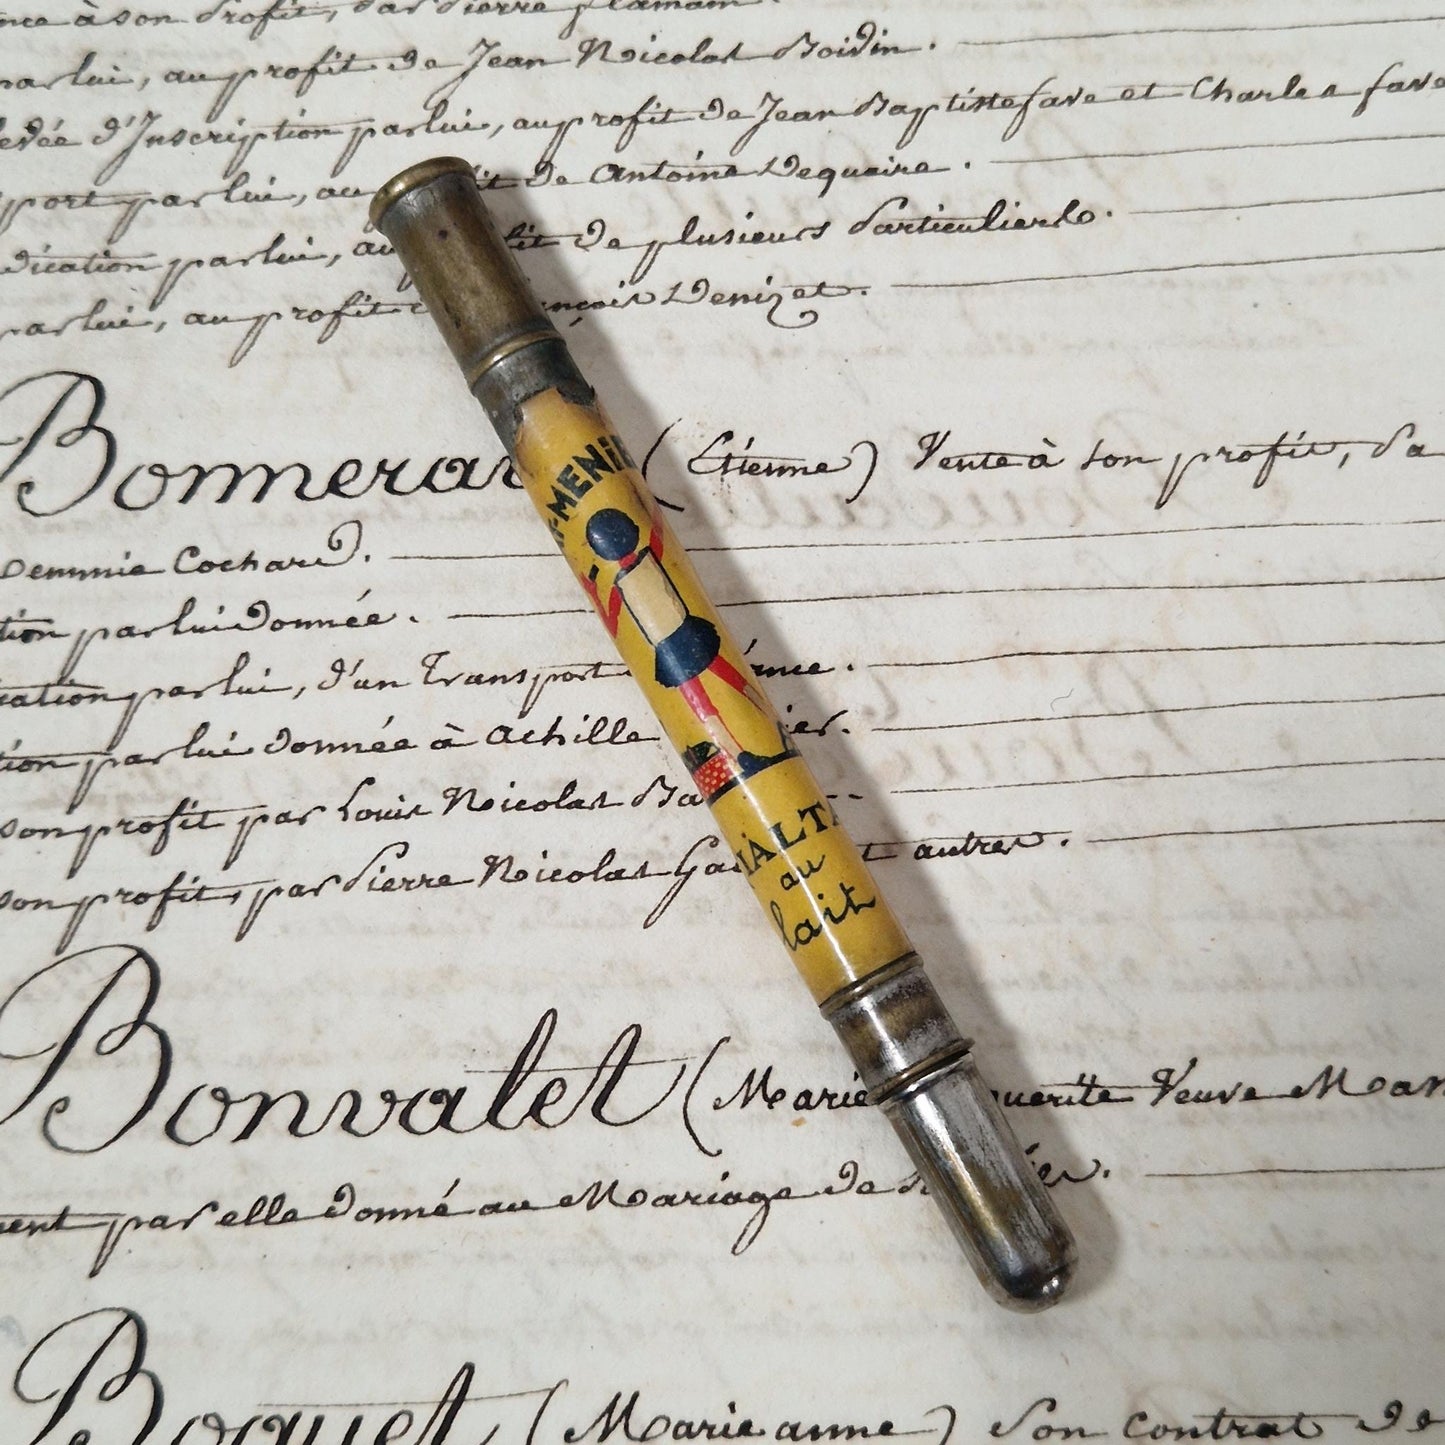 à son profit, par Pierre flamain.
par lui, au profit de Jean Nicolas Boidin.
d'Inscription par lui, au profit de Jean Baptiste fave et Charles fave
port par lui, au de Antoine Dequaire.
dication par lui, au de plusieurs Particuliers.
par lui, au profit Denizet.
(Etienne) Vente à son profit, Pa
Cochard.
tion par lui donnée.
par lui, d'un Transport
tion par lui donnée à Achille
son profit par Louis Nicolas Ba
son profit, par Pierre Nicolas Ga t autres.
Bonvalet (Marie uerite Veuve Mar
ment par elle donné au Mariage de
Boquet (Marie anne) Son contrat de
-MENIE
MALTA
au
lait